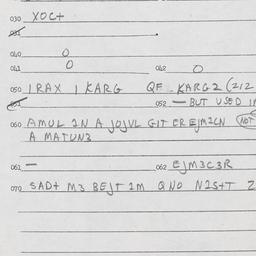 030 XOC+
031
040 O
041 O 042 O
050 IRAX I KARG QF KARG2 (212
051 052 — BUT USED I
060 AMUL IN A JOJVL GIT EREJM2CN (NOT
A MATUN3
061 — 062 EJM3C3R
070 SAD+ M3 BEJT IM QNO N2S+T 2